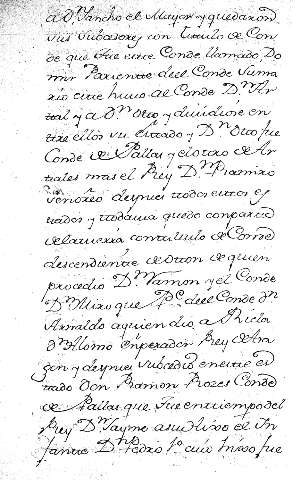 a Dn Sancho el Mayor y quedaron
sus subcesores con titulo de Con
de que fue este Conde llamado Do
mir Pariente del Conde suma
rio este huuo al Conde Dn Ar
tal y a Dn Oto y diuidiose en
tre ellos su estado y Dn Oto fue
Conde de Pallas y el otro de Ar
tales mas el Rey Dn Ramiro
señoreo despues todos estos es
tados y todauia quedo con parte
de la tierra con titulo de Conde
descendiente de Oton de quien
procedio Dn Ramon y el Conde
Dn Miro que del Conde Dn
Arnaldo a quien dio a Ricla
Dn Alonso Enperador Rey de Ara
gon y despues subcedio en este es
tado Don Ramon Rozes Conde
de Pallas que fue en tiempo del
Rey Dn Jayme a su hixo el In
fante Dn Pedro cuio hixo fue